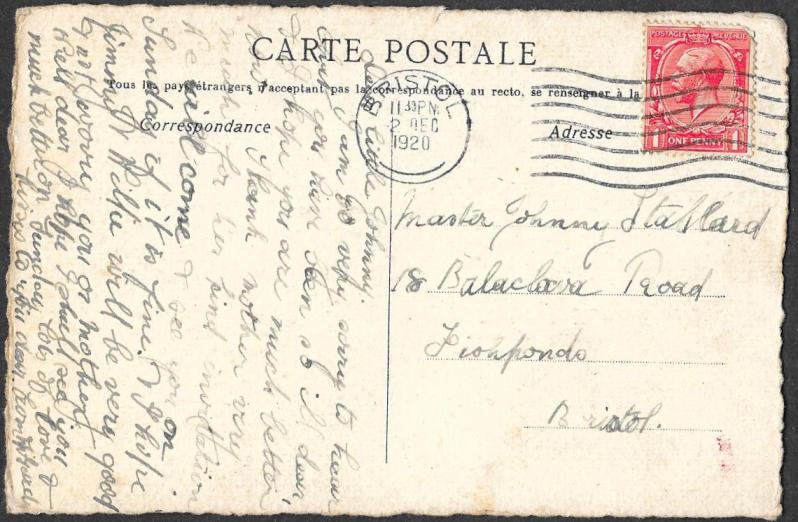 CARTE POSTALE
Tous les pays étrangers n'acceptant pas la correspondance au recto, se renseigner à la
Correspondance
Adresse
BRISTOL
11 30 PM
2 DEC
1920
POSTAGE REVENUE
ONE PENNY
Master Johnny Stallard
18 Balaclava Road
Fishponds
Bristol.
Dear little Johnny
I am so very sorry to hear
you have been so ill dear
I hope you are much better
now. Thank mother very
much for her kind invitation
We will come & see you on
Sunday if it is fine. I hope
Jimmy & Alfie will be very good
& not worry you or mother.
Well dear I hope I shall see you
much better on Sunday lots of love &
kisses to you dear from